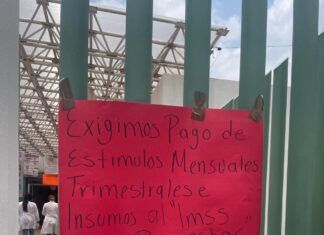 Exigimos Pago de
Estimulos Mensuales,
Trimestrales e
Insumos al "Imss